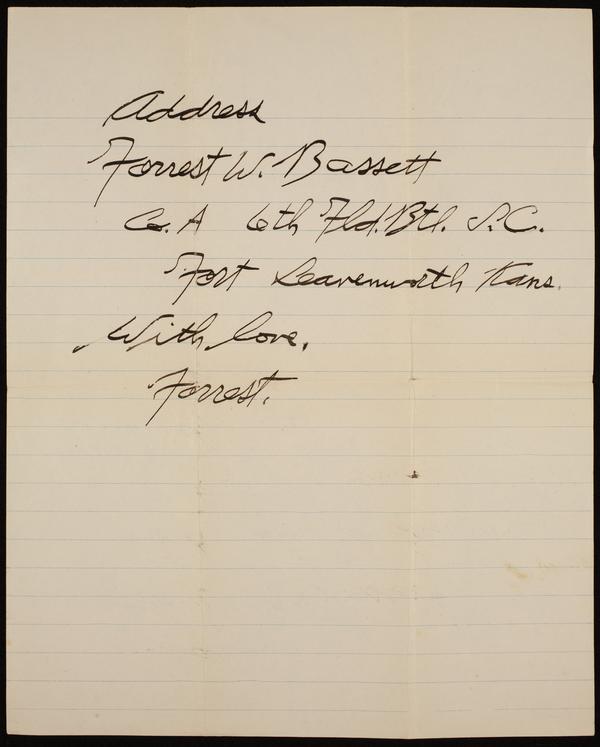 Address
Forrest W. Bassett
Co. A 6th Fld. Btl. S.C.
Fort Leavenworth Kans.
With love,
Forrest.